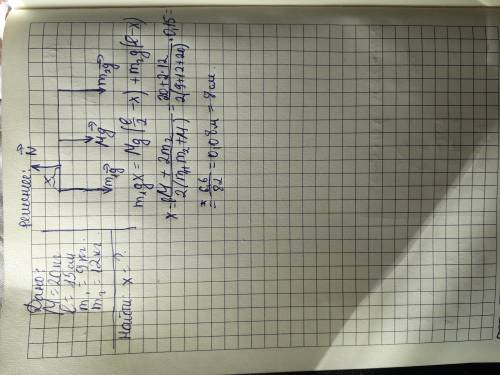 Дано:
M = 20кг
ℓ = 15см
m₁ = 9кг
m₂ = 12кг
Найти: x = ?
Решение:
N⃗
x
m₁g⃗
Mg⃗
m₂g⃗
m₁gx = Mg(ℓ/2 - x) + m₂g(ℓ-x)
x = ℓM + 2m₂ / 2(m₁+m₂+M) = 20+2·12 / 2(9+12+20) · 0,15 =
= 6,6/82 = 0,08м = 8см.